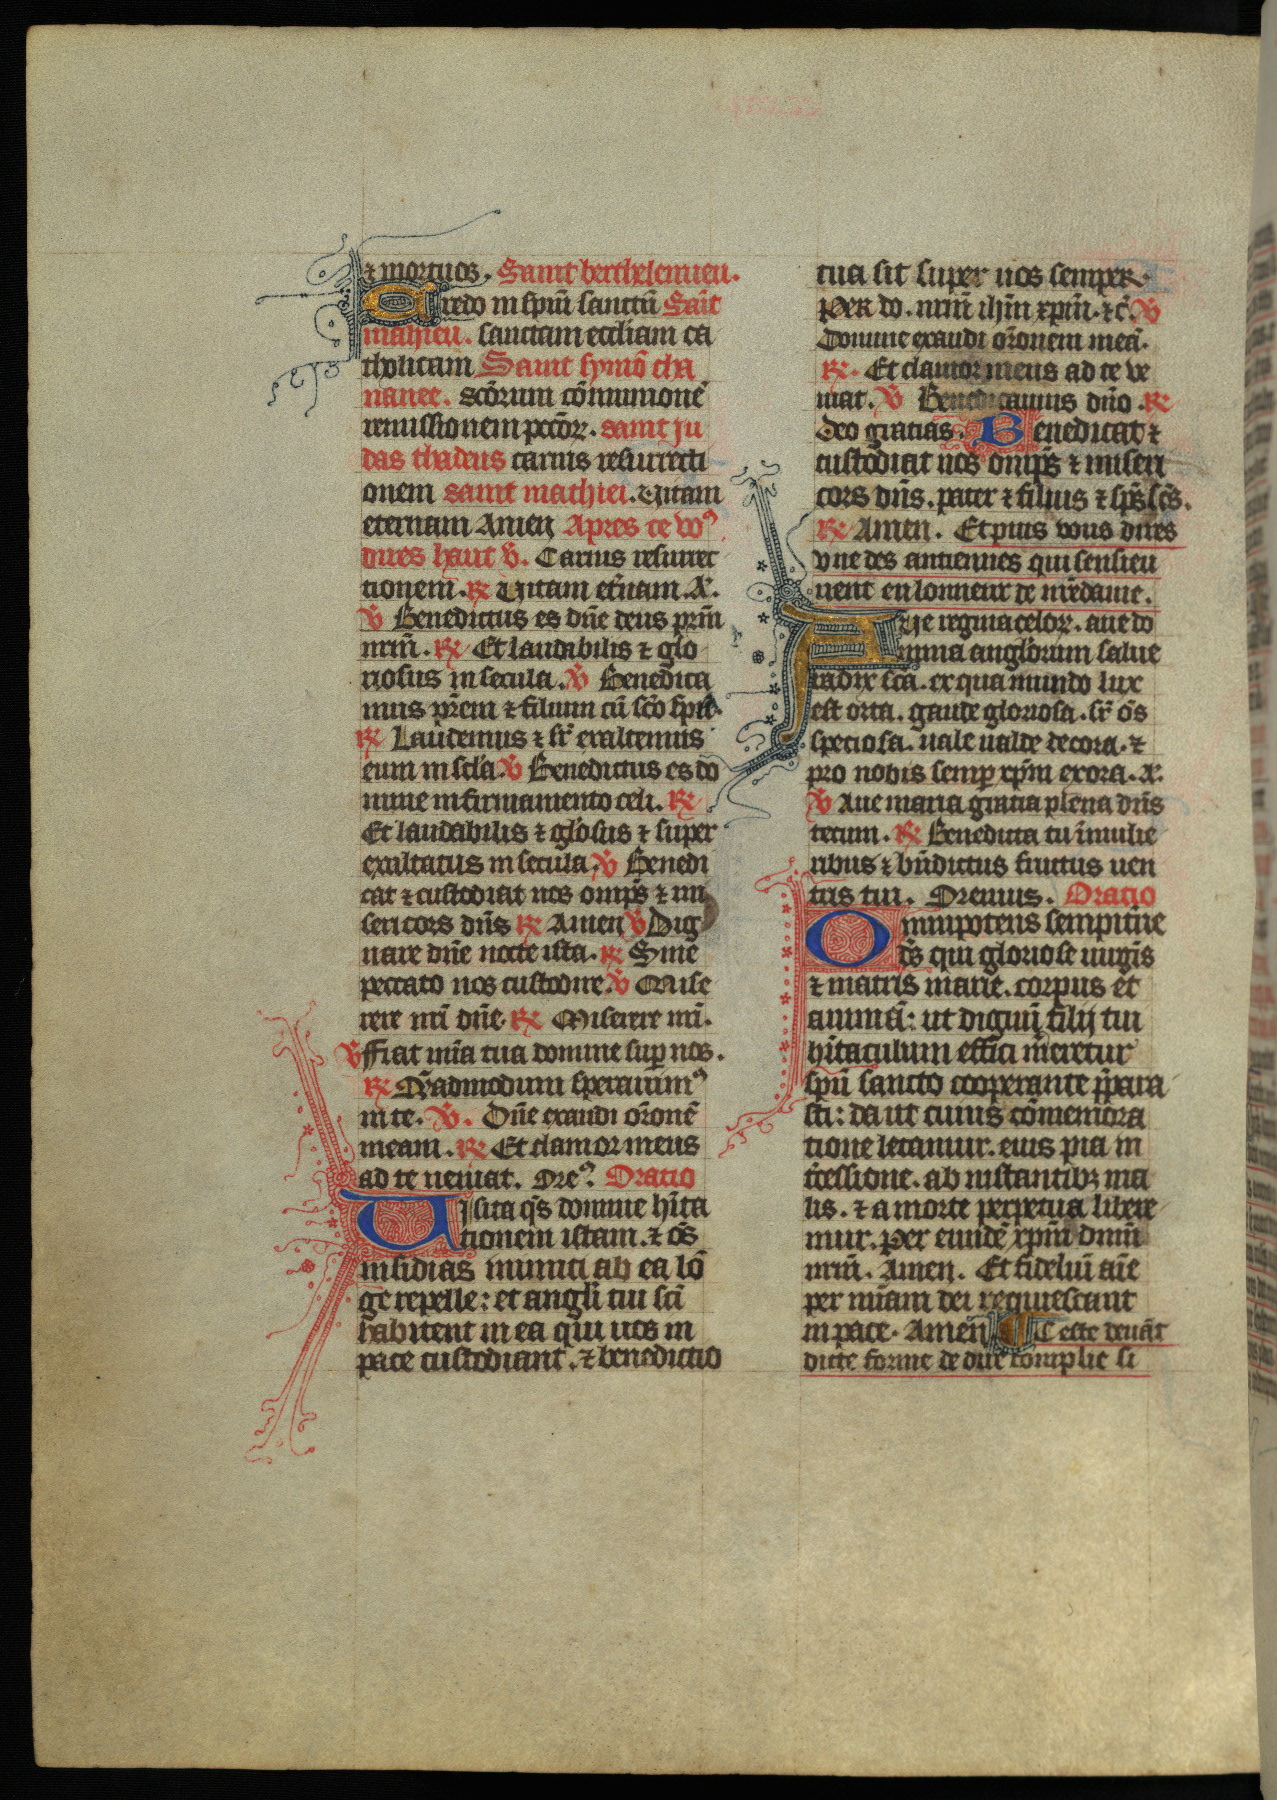 ⁊ mortuos. Saint berthelemieu.
Credo in spm̄ sanctū Sait̄
mahieu. sanctam eccliam ca
tholicam Saint symō cha
nanee. scōrum cōmunionē
remissionem pccōꝝ. saint ju
das thadeus carnis resurrecti
onem saint mathiei. Vitam
eternam Amen Apres ce voꝰ
dires haut ℣. Carnis resurrec
tionem. ℟ Vitam et̄nam. A.
℣ Benedictus es dn̄e deus prm̄
nrm̄. ℟ Et laudabilis ⁊ glo
riosus in secula. ℣ Benedica
mus pr̄em ⁊ filium cū sc̄o spū.
℟ Laudemus ⁊ sr̄ exaltemus
eum in scl̄a ℣ Benedictus es do
mine in firmamento celi. ℟
Et laudabilis ⁊ gl̄osus ⁊ super
exaltatus in secula ℣ Benedi
cat ⁊ custodiat nos omp̄s ⁊ mi
sericors dn̄s ℟ Amen ℣ Dig
nare dn̄e nocte ista. ℟ Sine
peccato nos custodire. ℣ Mise
rere nr̄i dn̄e. ℟ Miserere nr̄i.
℣ ffiat mīa tua domine sup nos.
℟ Qͫadmodum sperauimꝰ
in te. ℣. Dn̄e exaudi or̄onē
meam. ℟ Et clamor meus
ad te ueniat. Oreꝰ. Oratio
Uisita qs̄ domine hīta
tionem istam. ⁊ oīs
insidias inimici ab ea lō
ge repelle: et angli tui sc̄i
habitent in ea qui nos in
pace custodiant. ⁊ benedictio
tua sit super nos semper.
Per do. nrm̄ ihm̄ xpm̄. ⁊c̄. ℣
Domine exaudi or̄onem meā.
℟. Et clamor meus ad te ve
niat. ℣ Benedicamus dn̄o. ℟
deo gratias. Benedicat ⁊
custodiat nos omp̄s ⁊ miseri
cors dn̄s. pater ⁊ filius ⁊ sp̄s sc̄s.
℟ Amen. Et puis vous dires
vne des antiennes qui sensieu
uent en lonneur de nr̄edame.
Aue regina celoꝝ. aue do
mina angl̄orum salue
radix sc̄a. ex qua mundo lux
est orta. gaude gloriosa. sr̄ oēs
speciosa. uale ualde decora. ⁊
pro nobis semp xpm̄ exora. A.
℣ Aue maria gratia plena dn̄s
tecum. ℟ Benedicta tu ī mulie
ribus ⁊ bn̄dictus fructus uen
tris tui. Oremus. Oratio
Omnipotens sempit̄ne
ds̄ qui gloriose uirgīs
⁊ matris marie. corpus et
animā: ut dignū filij tui
hītaculum effici meretur
spū sancto cooperante p̄para
sti: da ut cuius cōmemora
tione letamur. eius pia in
t̄cessione. ab instantibꝫ ma
lis. ⁊ a morte perpetua libere
mur. Per eundē xpm̄ dnm̄
nrm̄. Amen. Et fideliū aīe
per mīam dei requiescant
in pace. Amen Ceste deuāt
dicte forme de dire complie si